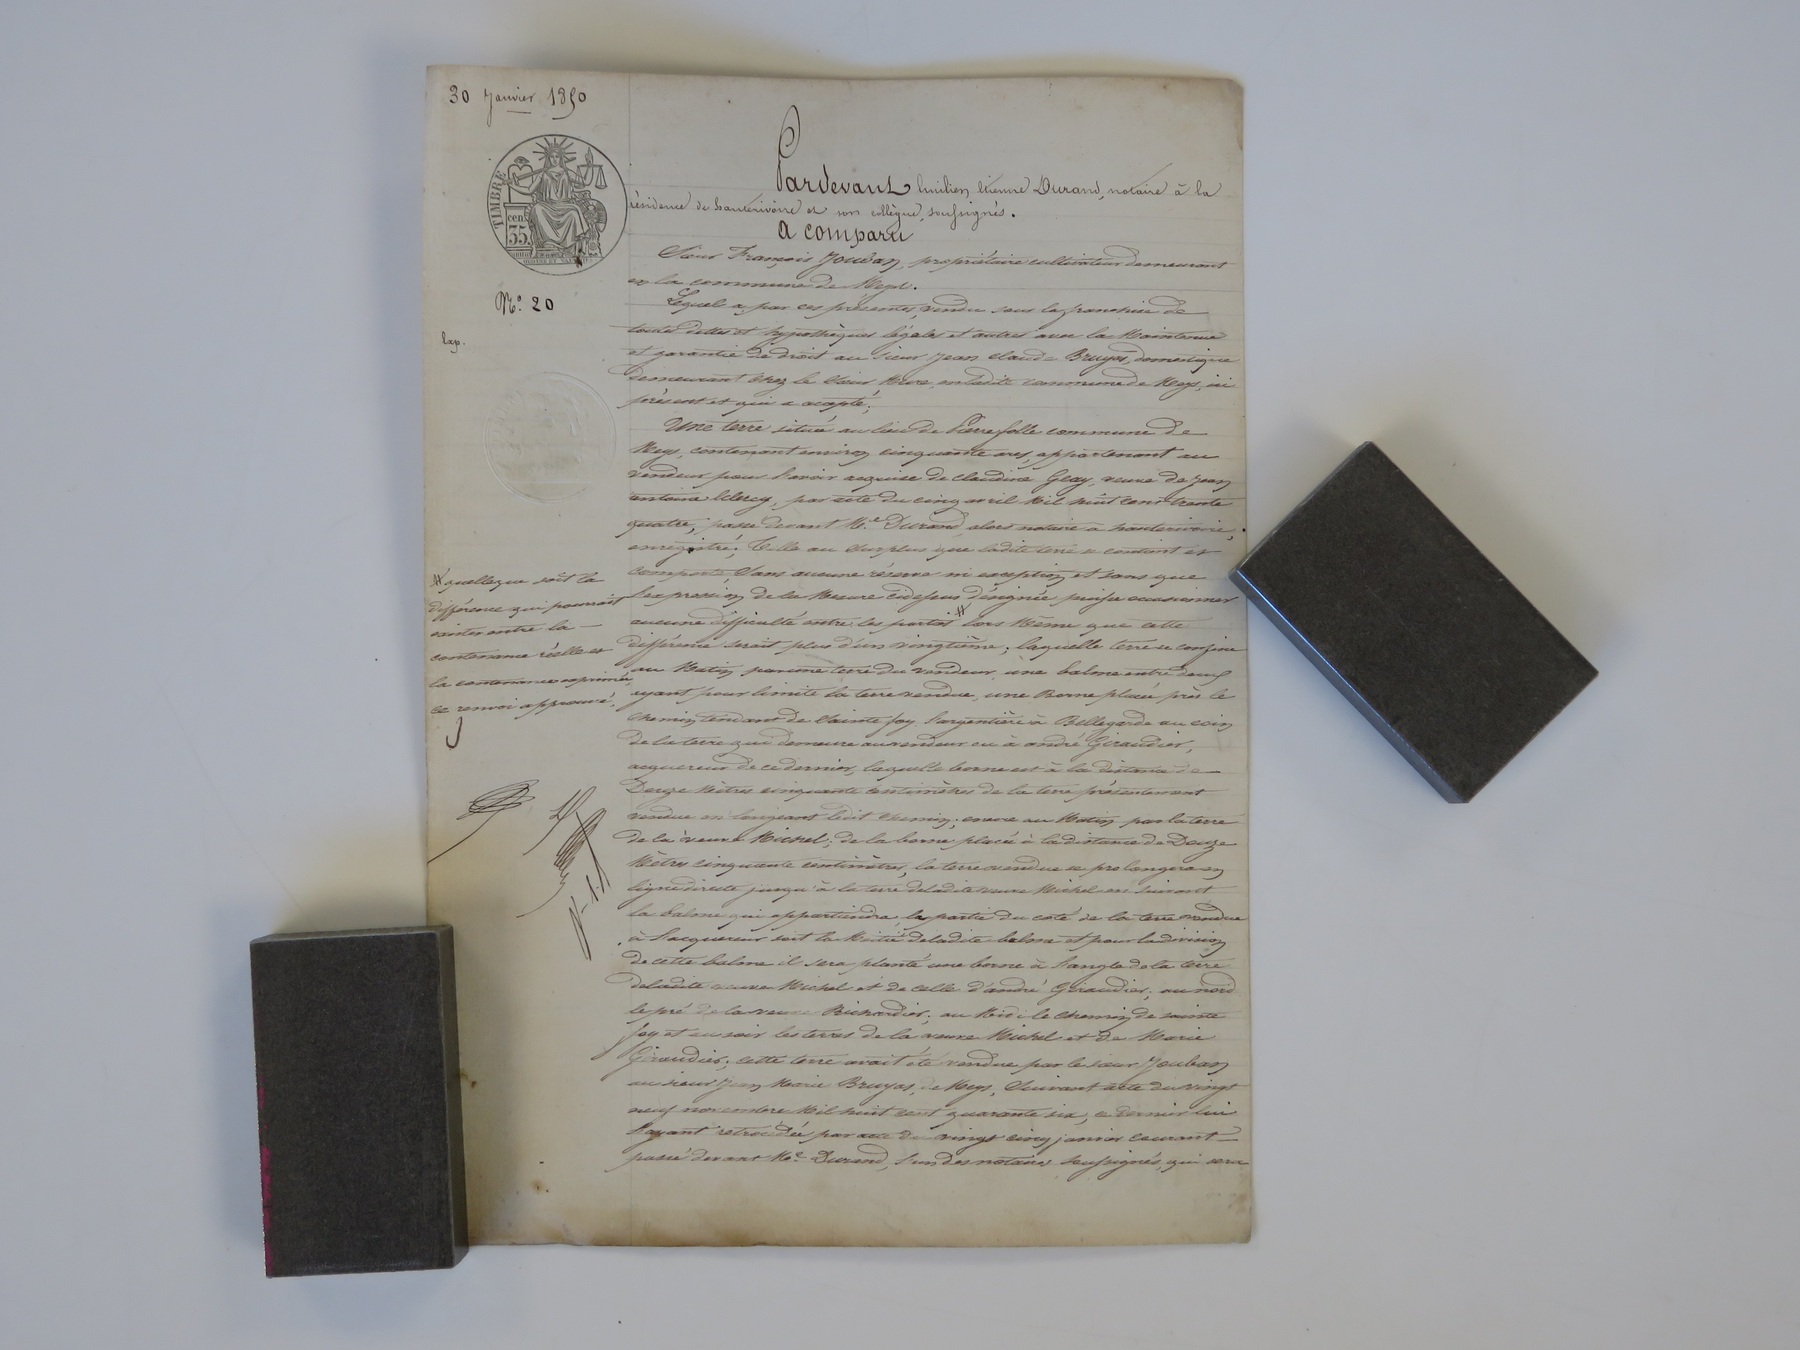 30 Janvier 1850
TIMBRE
cen.
35.
N.º 20
Exp.
Pardevant Emilien Etienne Durand, notaire à la
résidence de hauterivoire et son collègue, soussignés.
a comparu
Sieur François Jouban, propriétaire cultivateur demeurant
en la commune de Meys.
Lequel a, par ces présentes, vendu sous la franchise de
toutes dettes et hypothèques légales et autres avec la Maintenue
et garantie de droit au sieur Jean Claude Bruyas, domestique
demeurant chez le sieur en ladite commune de Meys, ici
présent et qui a accepté;
Une terre située au lieu de Pierrefolle commune de
Meys, contenant environ cinquante ares, appartenant au
vendeur pour l'avoir acquise de claudine Geay, veuve de Jean
antoine Clercy, par acte du cinq avril Mil huit cent trente
quatre, passé devant Me. Durand, alors notaire a hauterivoire,
enregistré; Telle au surplus que ladite terre se contient et
comporte, Sans aucune réserve ni exception et sans que
l'expression de la Mesure cidessus désignée puisse occasionner
aucune difficulté entre les parties # lors Même que cette
différence serait plus d'un vingtième; laquelle terre se confine
au Matin par une terre du vendeur, une balme entre deux
ayant pour limite la terre vendue, une Borne placée près le
chemin tendant de Sainte foy l'argentière à Bellegarde au coin
de la terre qui demeure au vendeur ou à andré Giraudier,
acquereur de ce dernier, laquelle borne est à la distance de
Douze Mètres cinquante centimètres de la terre présentement
vendue en longeant ledit chemin; encore au Matin par la terre
de la veuve Michel; de la borne placée à la distance de Douze
Mètres cinquante centimètres, la terre vendue se prolongera en
ligne directe jusqu'à la terre deladite veuve Michel en suivant
la balme qui appartiendra la partie du coté de la terre vendue
à l'acquereur soit la Moitié deladite balme et pour la division
de cette balme il sera planté une borne à l'angle de la terre
deladite veuve Michel et de celle d'andré Giraudier; au nord
le pré de la veuve Richardier; au Midi le chemin de sainte
foy et au soir les terres de la veuve Michel et de Marie
Giraudier; cette terre avait été vendue par le sieur Jouban
au sieur Jean Marie Bruyas, de Meys, Suivant acte du vingt
neuf novembre Mil huit cent quarante six, ce dernier lui
l'ayant retrocédée par acte du vingt cinq janvier courant
passé devant Me. Durand, l'un des notaires soussignés, qui sera
# quelleque soit la
différence qui pourrait
exister entre la
contenance réelle et
la contenance exprimée,
ce renvoi approuvé,